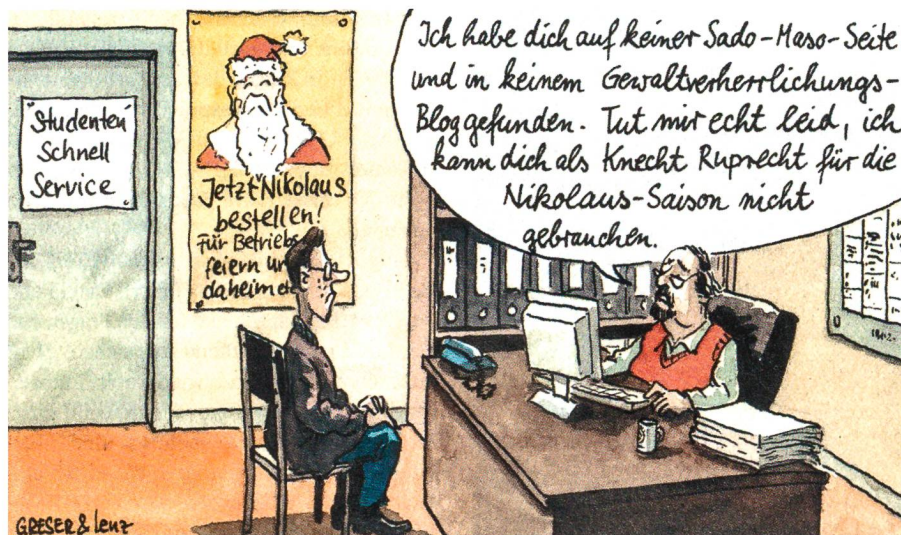 Studenten
Schnell
Service
Jetzt Nikolaus
bestellen!
Für Betriebs
feiern un
daheim
Ich habe dich auf keiner Sado-Maso-Seite
und in keinem Gewaltverherrlichungs-
Blog gefunden. Tut mir echt leid, ich
kann dich als Knecht Ruprecht für die
Nikolaus-Saison nicht
gebrauchen.
GRESER & Lenz